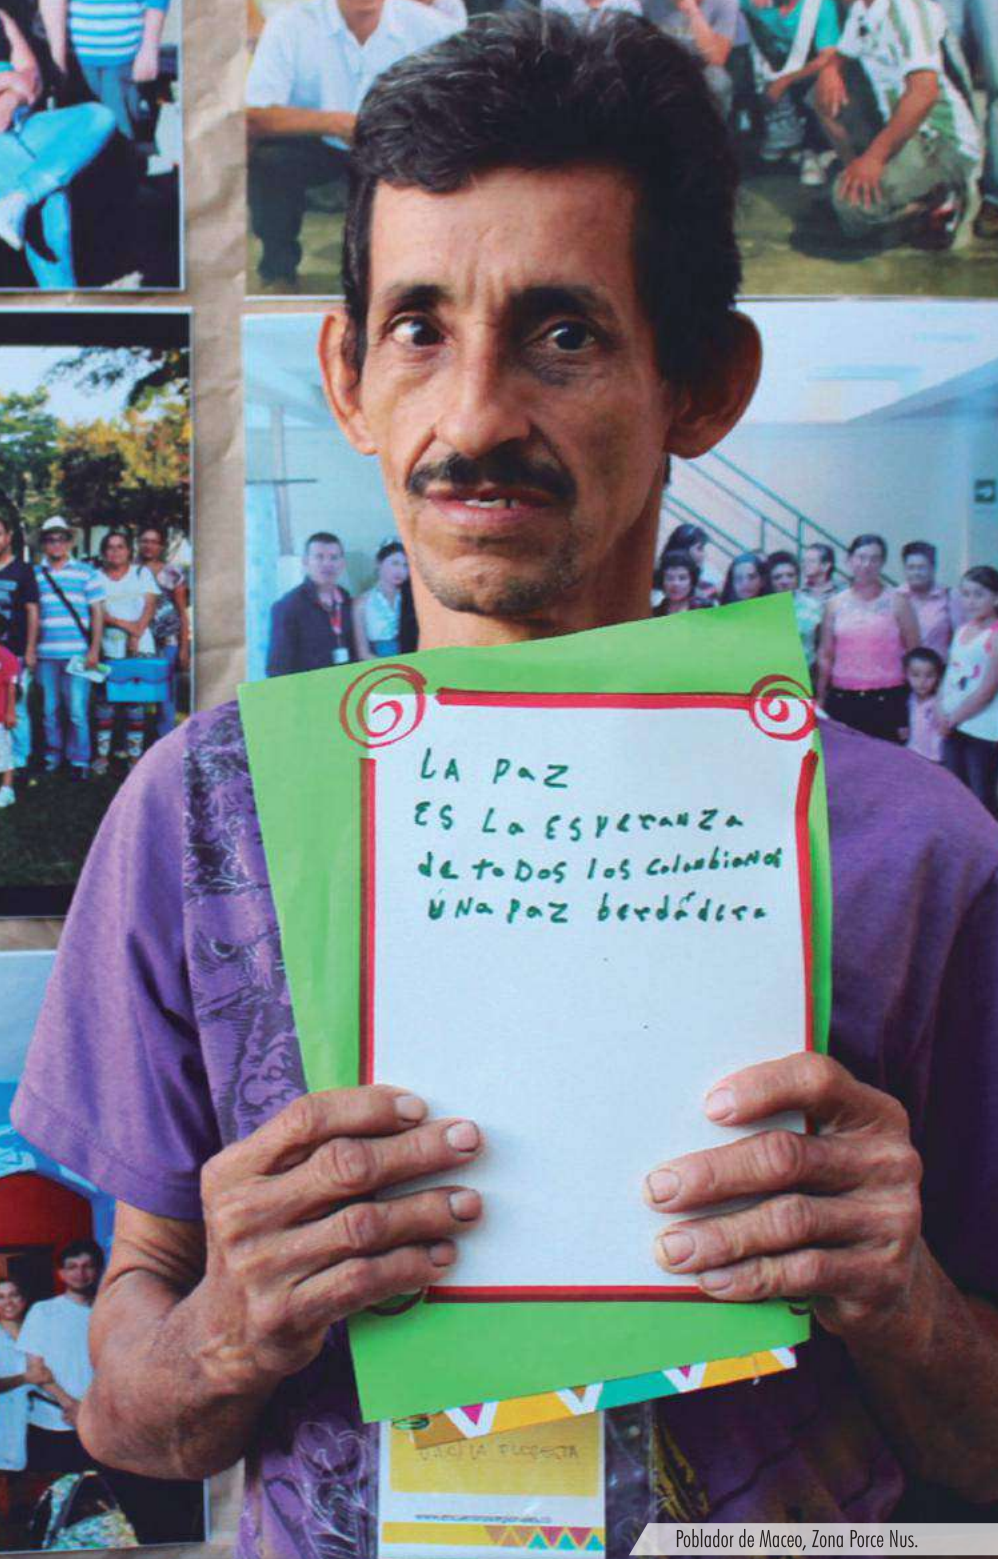 LA PaZ
ES La ESPeranZa
de toDOS los ColombiaNos
UNa PaZ berdádera
Poblador de Maceo, Zona Porce Nus.